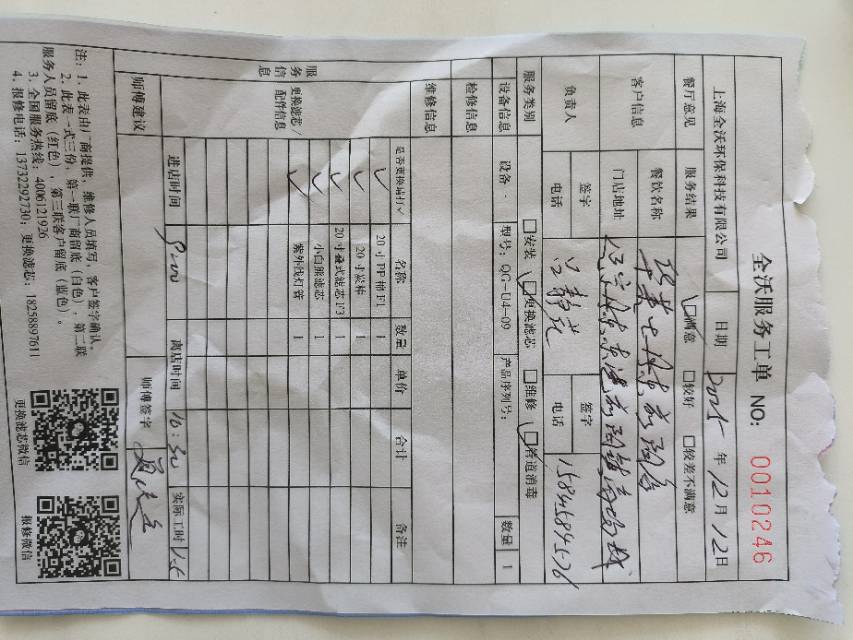 全沃服务工单 NO: 0010246
上海全沃环保科技有限公司 日期 2025年12月12日
餐厅意见 服务结果 满意 较好 较差不满意
客户信息 餐饮名称
门店地址
负责人 签字 签字
电话 电话
服务类别 安装 更换滤芯 维修 管道消毒
设备信息 设备 型号: QG-U4-09 产品序列号: 数量 1
检修信息
维修信息
服务信息 更换滤芯/配件信息 是否更换请打√ 名称 数量 单价 合计 备注
√ 20寸PP棉F1 1
√ 20寸炭棒 1
√ 20寸叠式滤芯F3 1
√ 小白熊滤芯 1
√ 紫外线灯管 1
进店时间 9:00 离店时间 10:30 实际工时
师傅建议 师傅签字
注: 1、此表由厂商提供, 维修人员填写, 客户签字确认。
2、此表一式三份, 第一联厂商留底(白色), 第二联
服务人员留底(红色), 第三联客户留底(蓝色)。
3、全国服务热线: 4006121926
4、报修电话: 13732292730; 更换滤芯: 18258897611
更换滤芯微信 报修微信